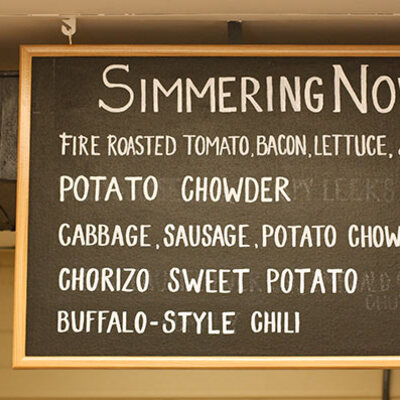 SIMMERING NO
FIRE ROASTED TOMATO, BACON, LETTUCE,
POTATO CHOWDER
CABBAGE, SAUSAGE, POTATO CHOW
CHORIZO SWEET POTATO
BUFFALO-STYLE CHILI